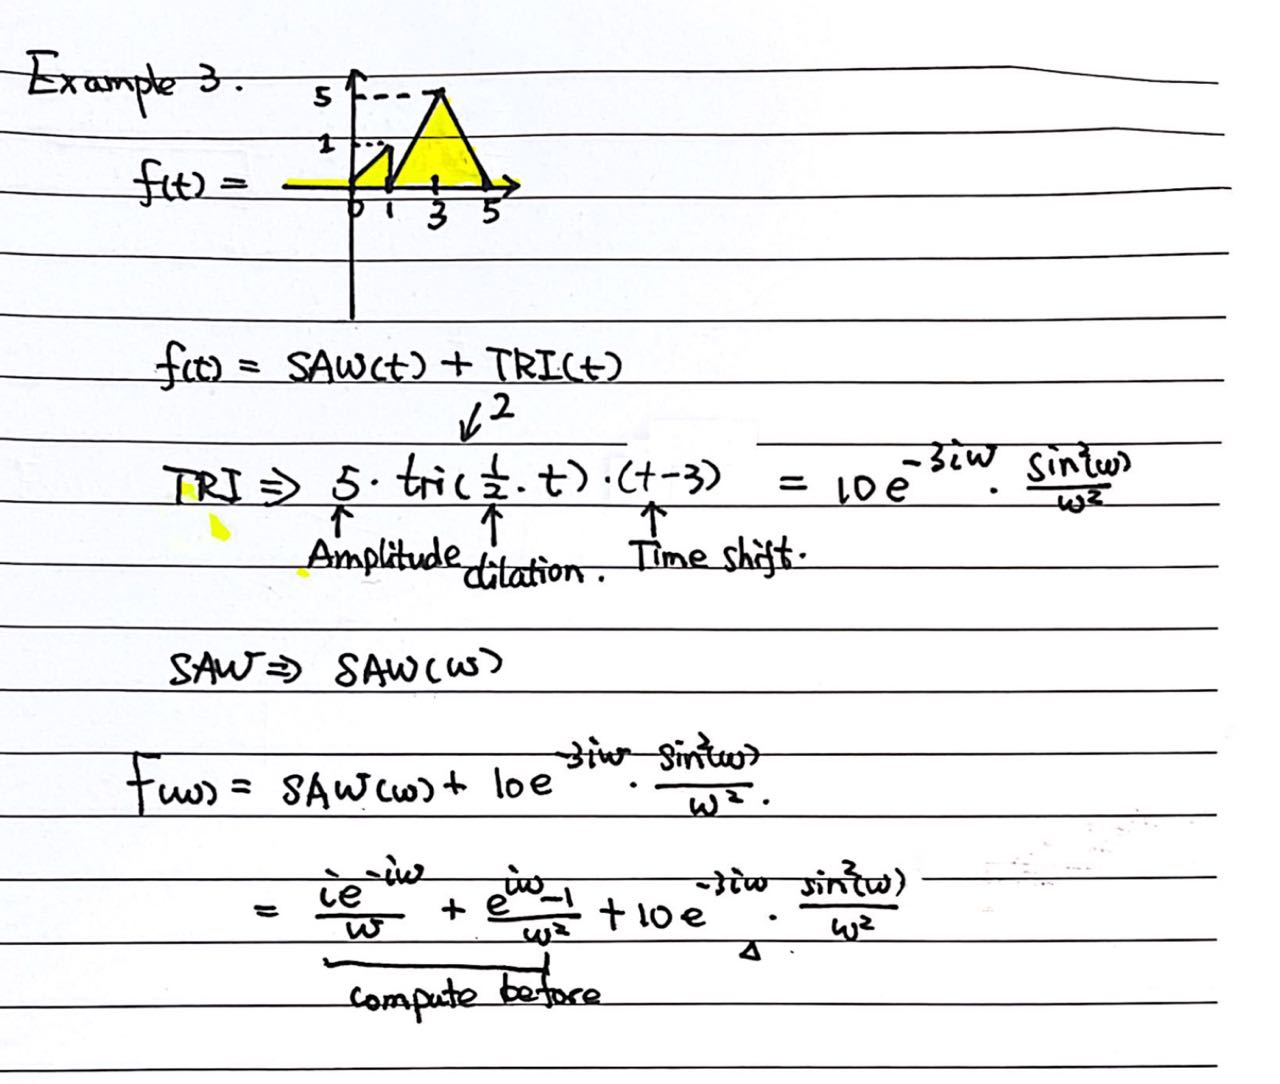 Example 3.
5
1
f(t) =
0 1 3 5
f(t) = SAW(t) + TRI(t)
↙ 2
TRI ⇒ 5 · tri(½ · t) · (t-3) = 10e^{-3iω} · sin²(ω)/ω²
↑ ↑ ↑
Amplitude dilation. Time shift.
SAW ⇒ SAW(ω)
F(ω) = SAW(ω) + 10e^{-3iω} · sin²(ω)/ω².
= ie^{-iω}/ω + e^{iω}-1/ω² + 10e^{-3iω} · sin²(ω)/ω²
compute before